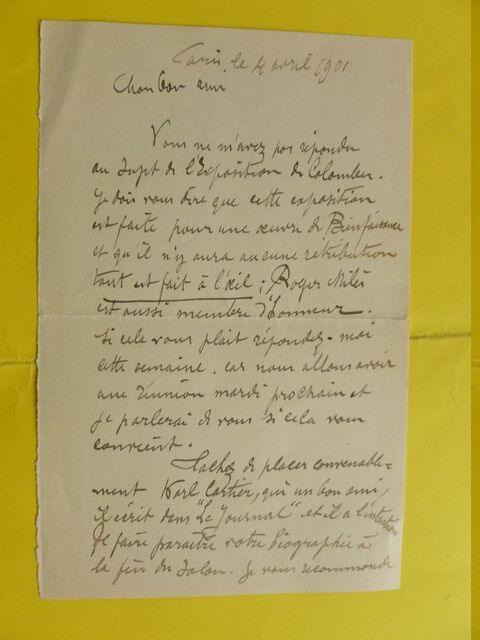 Paris, le 4 avril 1901
Mon bon ami
Vous ne m'avez pas répondu
au sujet de l'Exposition de Colombes.
Je dois vous dire que cette exposition
est faite pour une œuvre de Bienfaisance
et qu'il n'y aura aucune rétribution
tout est fait à l'œil ; Roger Milès
est aussi membre d'honneur.
Si cela vous plait répondez-moi
cette semaine, car nous allons avoir
une réunion mardi prochain et
je parlerai de vous si cela vous
convient.
Tachez de placer convenable-
ment Karl Cartier, qui un bon ami,
il écrit dans "Le Journal" et il a l'intention
de faire paraître votre biographie à
la fin du Salon. Je vous recommande